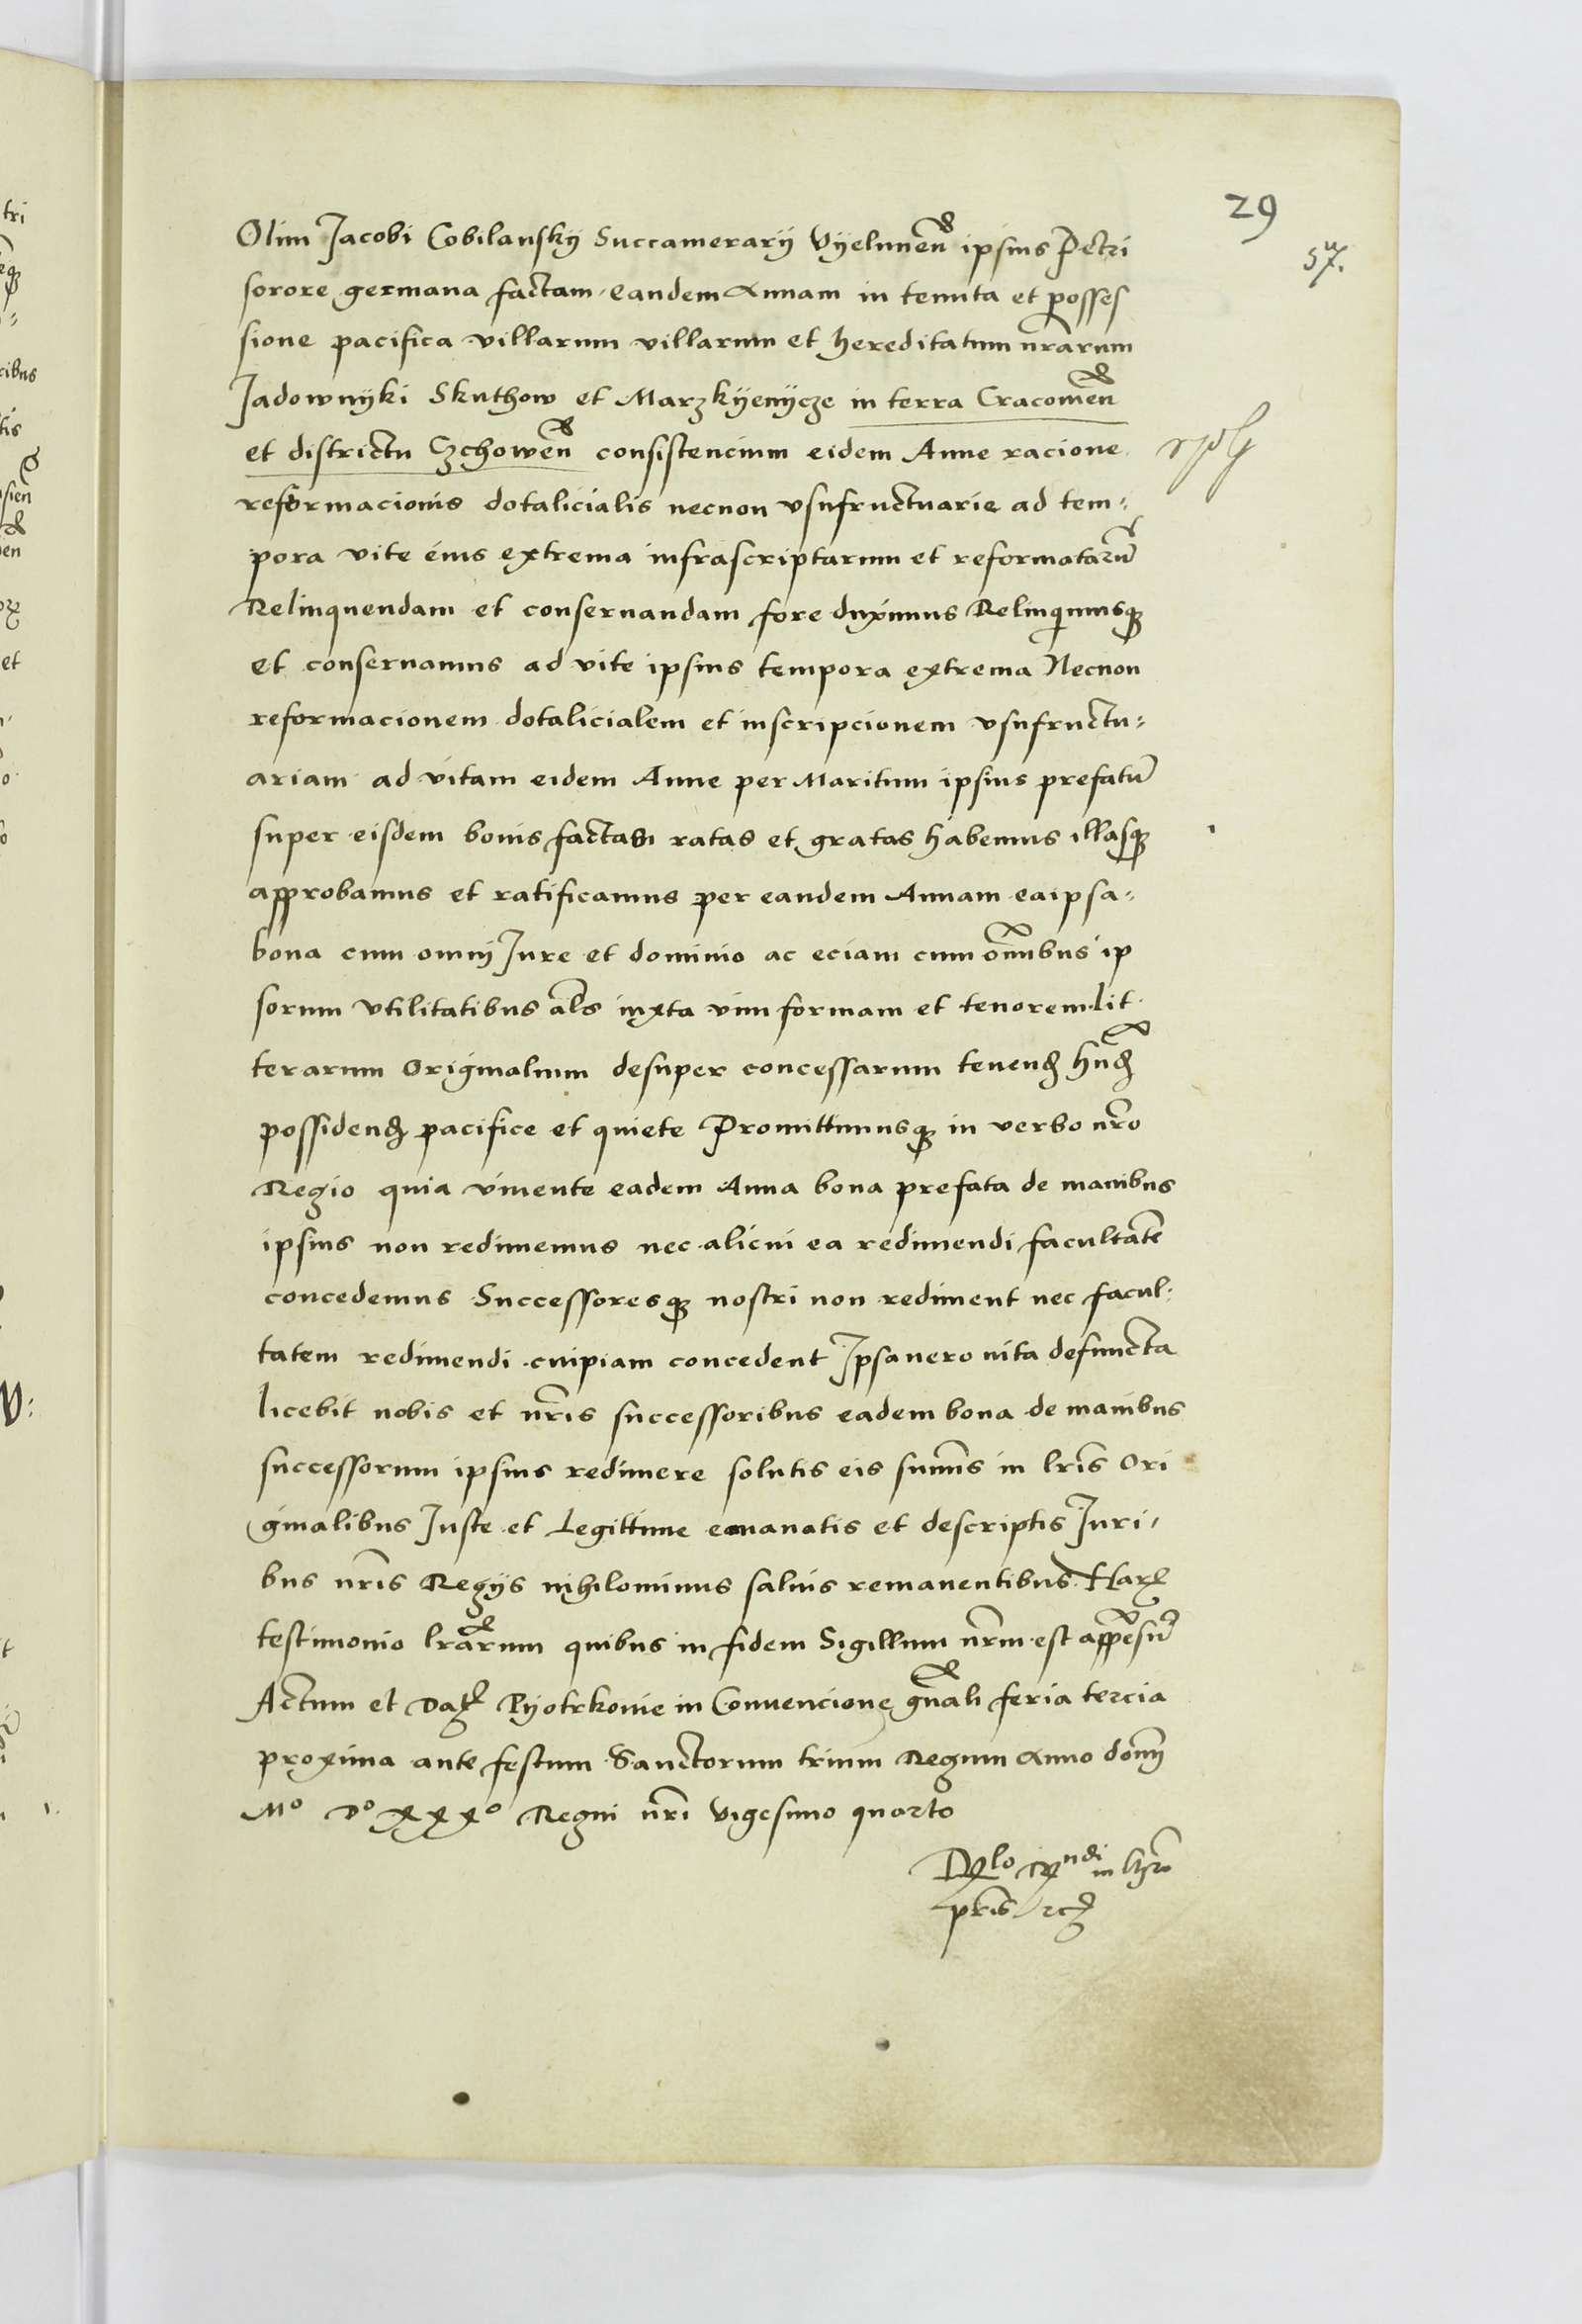 29
57.
Olim Jacobi Cobilansky Succamerarij Vyelunen ipsius Petri
sorore germana factam eandem Annam in tenuta et posses
sione pacifica villarum villarum et hereditatum nrarum
Jadownyki Skuthow et Marzkyenycze in terra Cracovien
et districtu Czchowen consistencium eidem Anne racione
reformacionis dotalicialis necnon vsufructuarie ad tem-
pora vite eius extrema infrascriptarum et reformatarũ
Relinquendam et conseruandam fore duximus Relinquimusqȝ
et conseruamus ad vite ipsius tempora extrema Necnon
reformacionem dotalicialem et inscripcionem vsufructu-
ariam ad vitam eidem Anne per Maritum ipsius prefatũ
super eisdem bonis factas ratas et gratas habemus illasqȝ
approbamus et ratificamus per eandem Annam ea ipsa
bona cum omnj Jure et dominio ac eciam cum omibus ip
sorum vtilitatibus als iuxta vim formam et tenorem lit
terarum Originalium desuper concessarum tenend hnd
possidend pacifice et quiete Promittimusqȝ in verbo nro
Regio quia viuente eadem Anna bona prefata de manibus
ipsius non redimemus nec alicui ea redimendi facultatẽ
concedemus Successoresqȝ nostri non rediment nec facul-
tatem redimendi cuipiam concedent Ipsa uero uita defuncta
licebit nobis et nris successoribus eadem bona de manibus
successorum ipsius redimere solutis eis summis in lris Ori
ginalibus Juste et Legittime emanatis et descriptis Juri-
bus nris Regijs nihilominus saluis remanentibus Harꝝ
testimonio lrarum quibus in fidem Sigillum nrm est appensũ
Actum et Dat Pyotrkouie in Conuencione gnali feria tercia
proxima ante festum Sanctorum trium Regum Anno domj
Mº Dº xxxº Regni nri vigesimo quarto